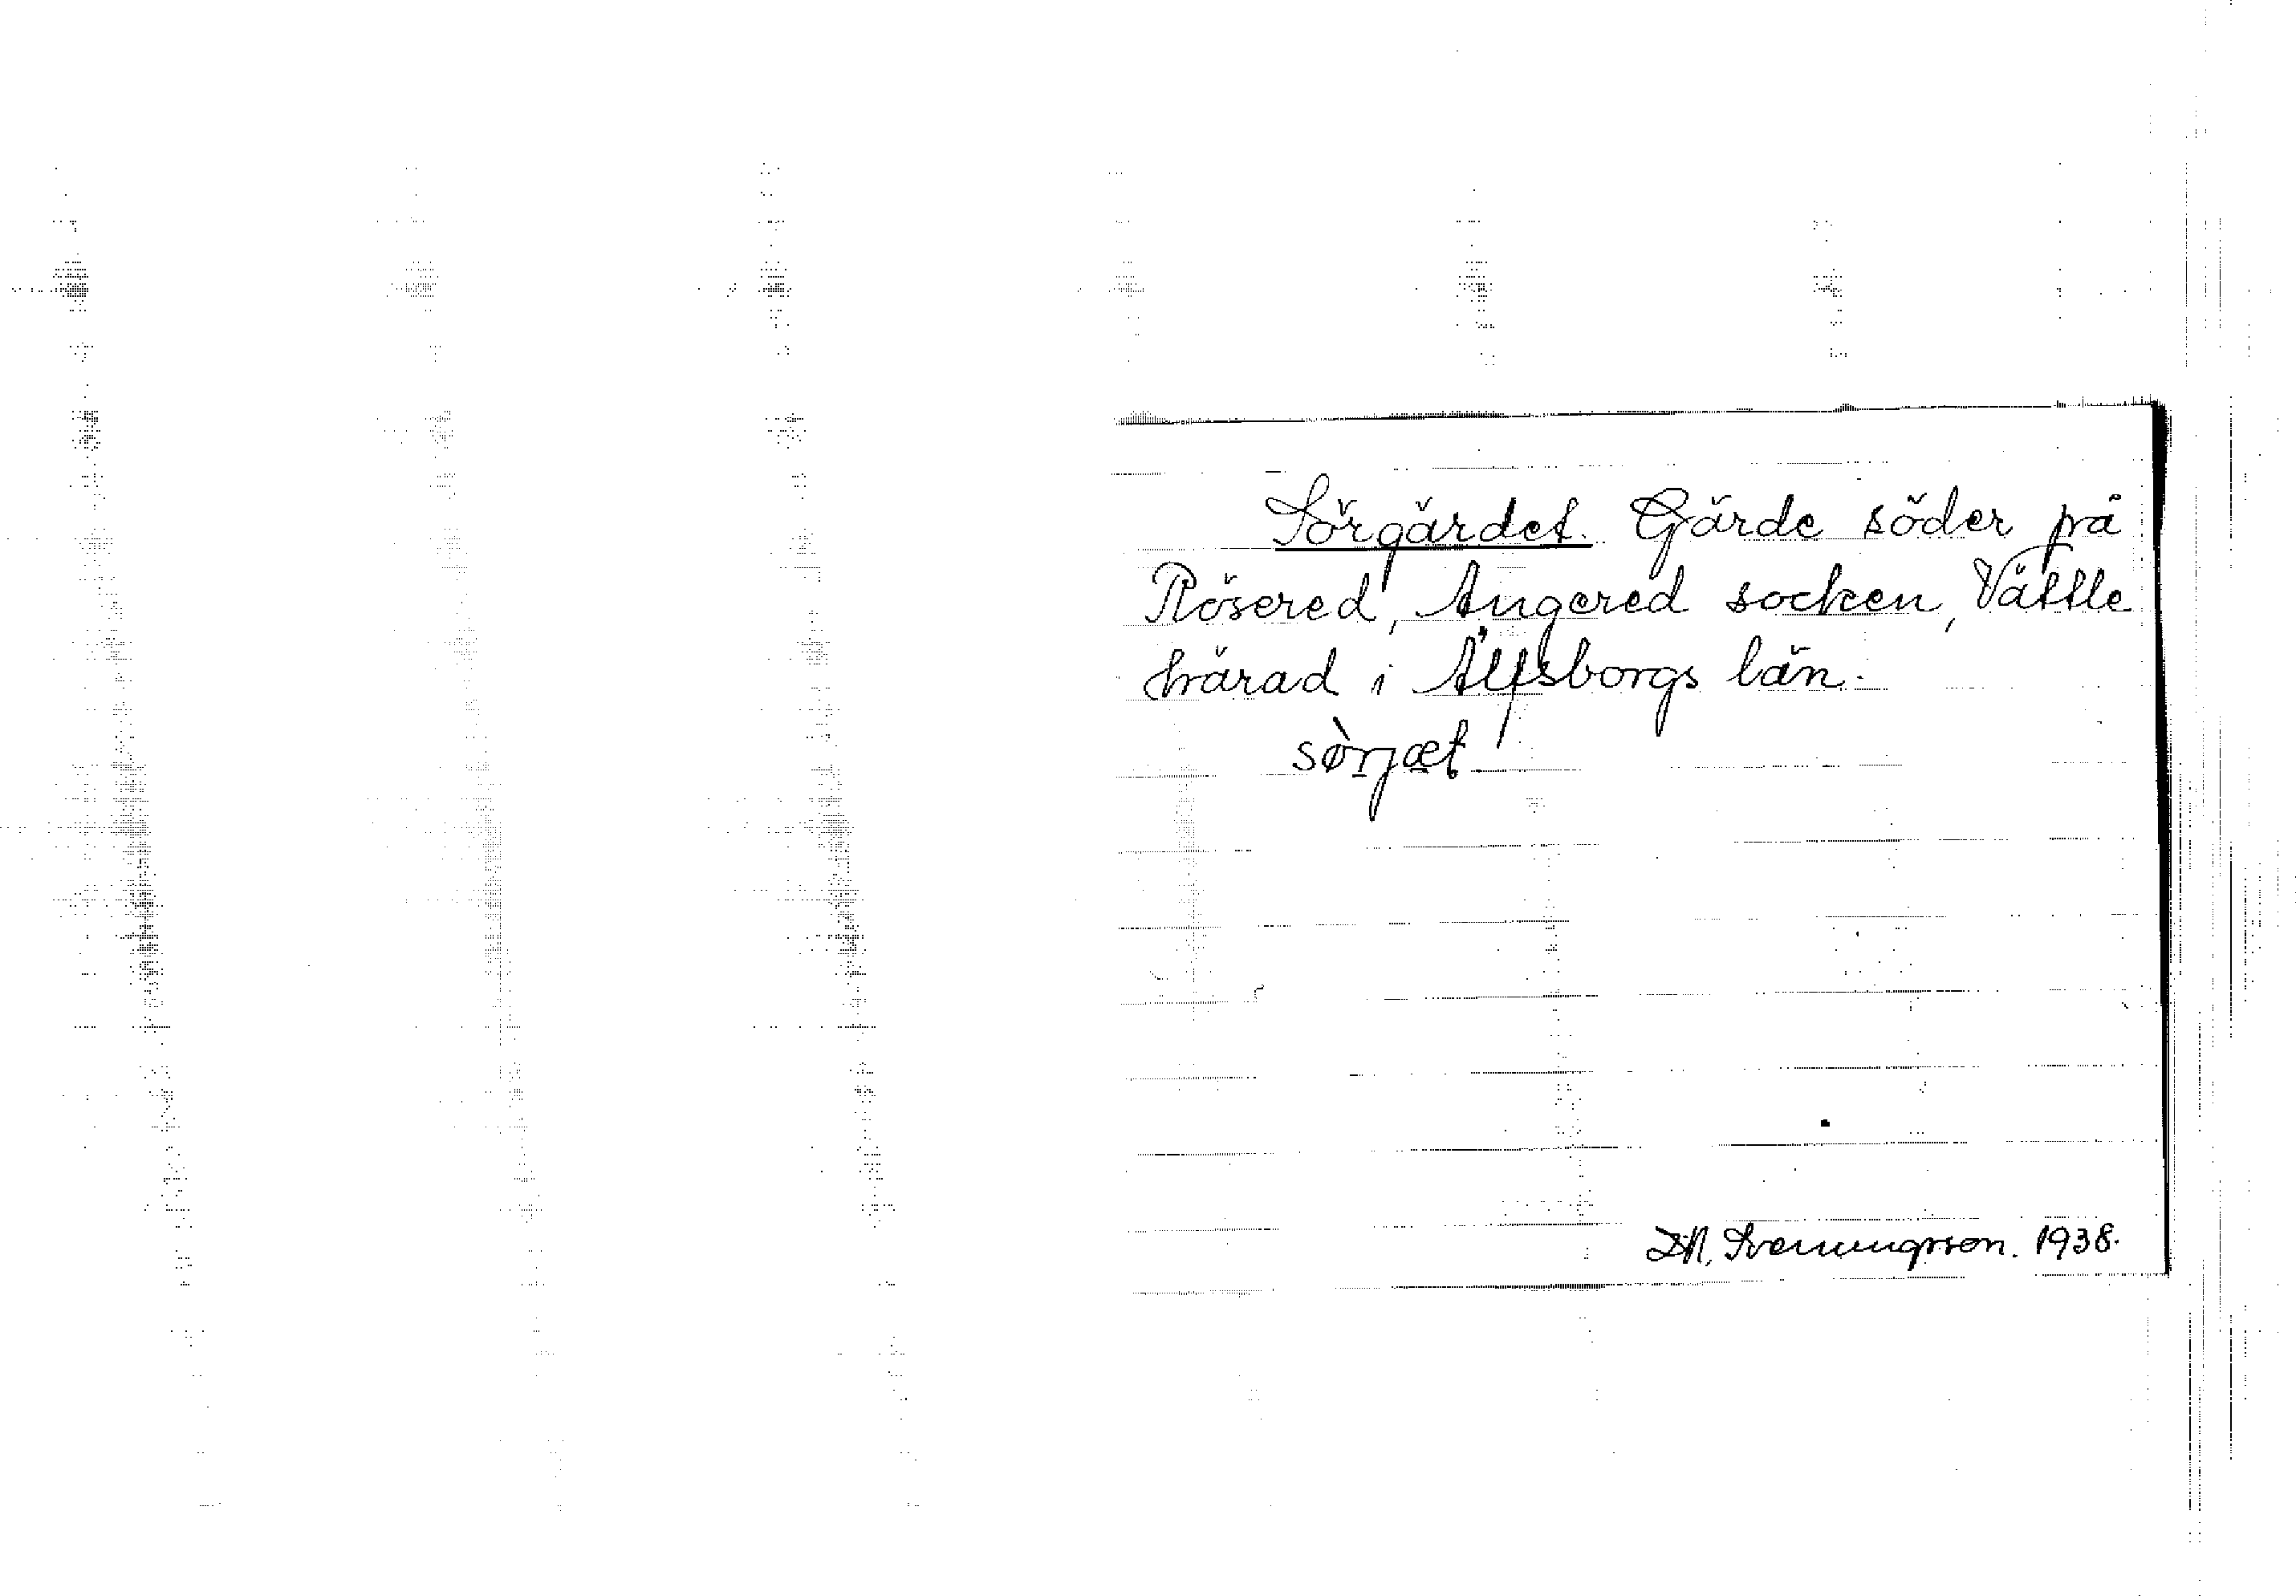 Sörgärdet. Gärde söder på
Rösered, Angered socken, Vättle
härad i Älfsborgs län.
sørjæt
D.N. Svenungsson. 1938.